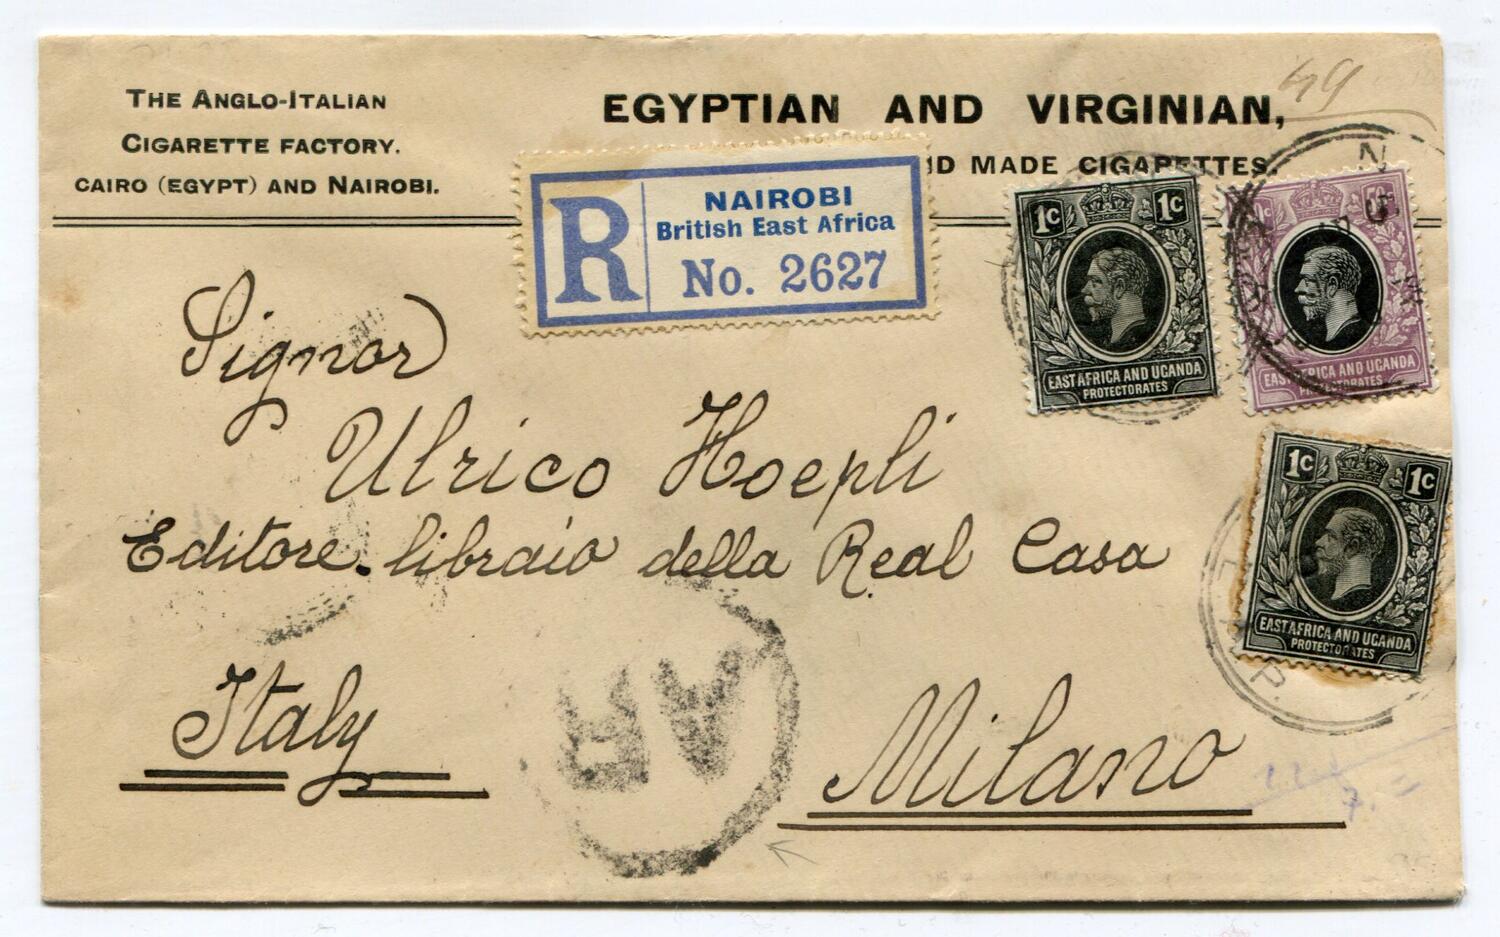 THE ANGLO-ITALIAN
CIGARETTE FACTORY.
CAIRO (EGYPT) AND NAIROBI.
EGYPTIAN AND VIRGINIAN,
49
MADE CIGARETTES.
R
NAIROBI
British East Africa
No. 2627
1c 1c
EAST AFRICA AND UGANDA
PROTECTORATES
50c
EAST AFRICA AND UGANDA
PROTECTORATES
1c 1c
EAST AFRICA AND UGANDA
PROTECTORATES
Signor
Ulrico Hoepli
Editore-libraio della Real Casa
Italy
AR
Milano